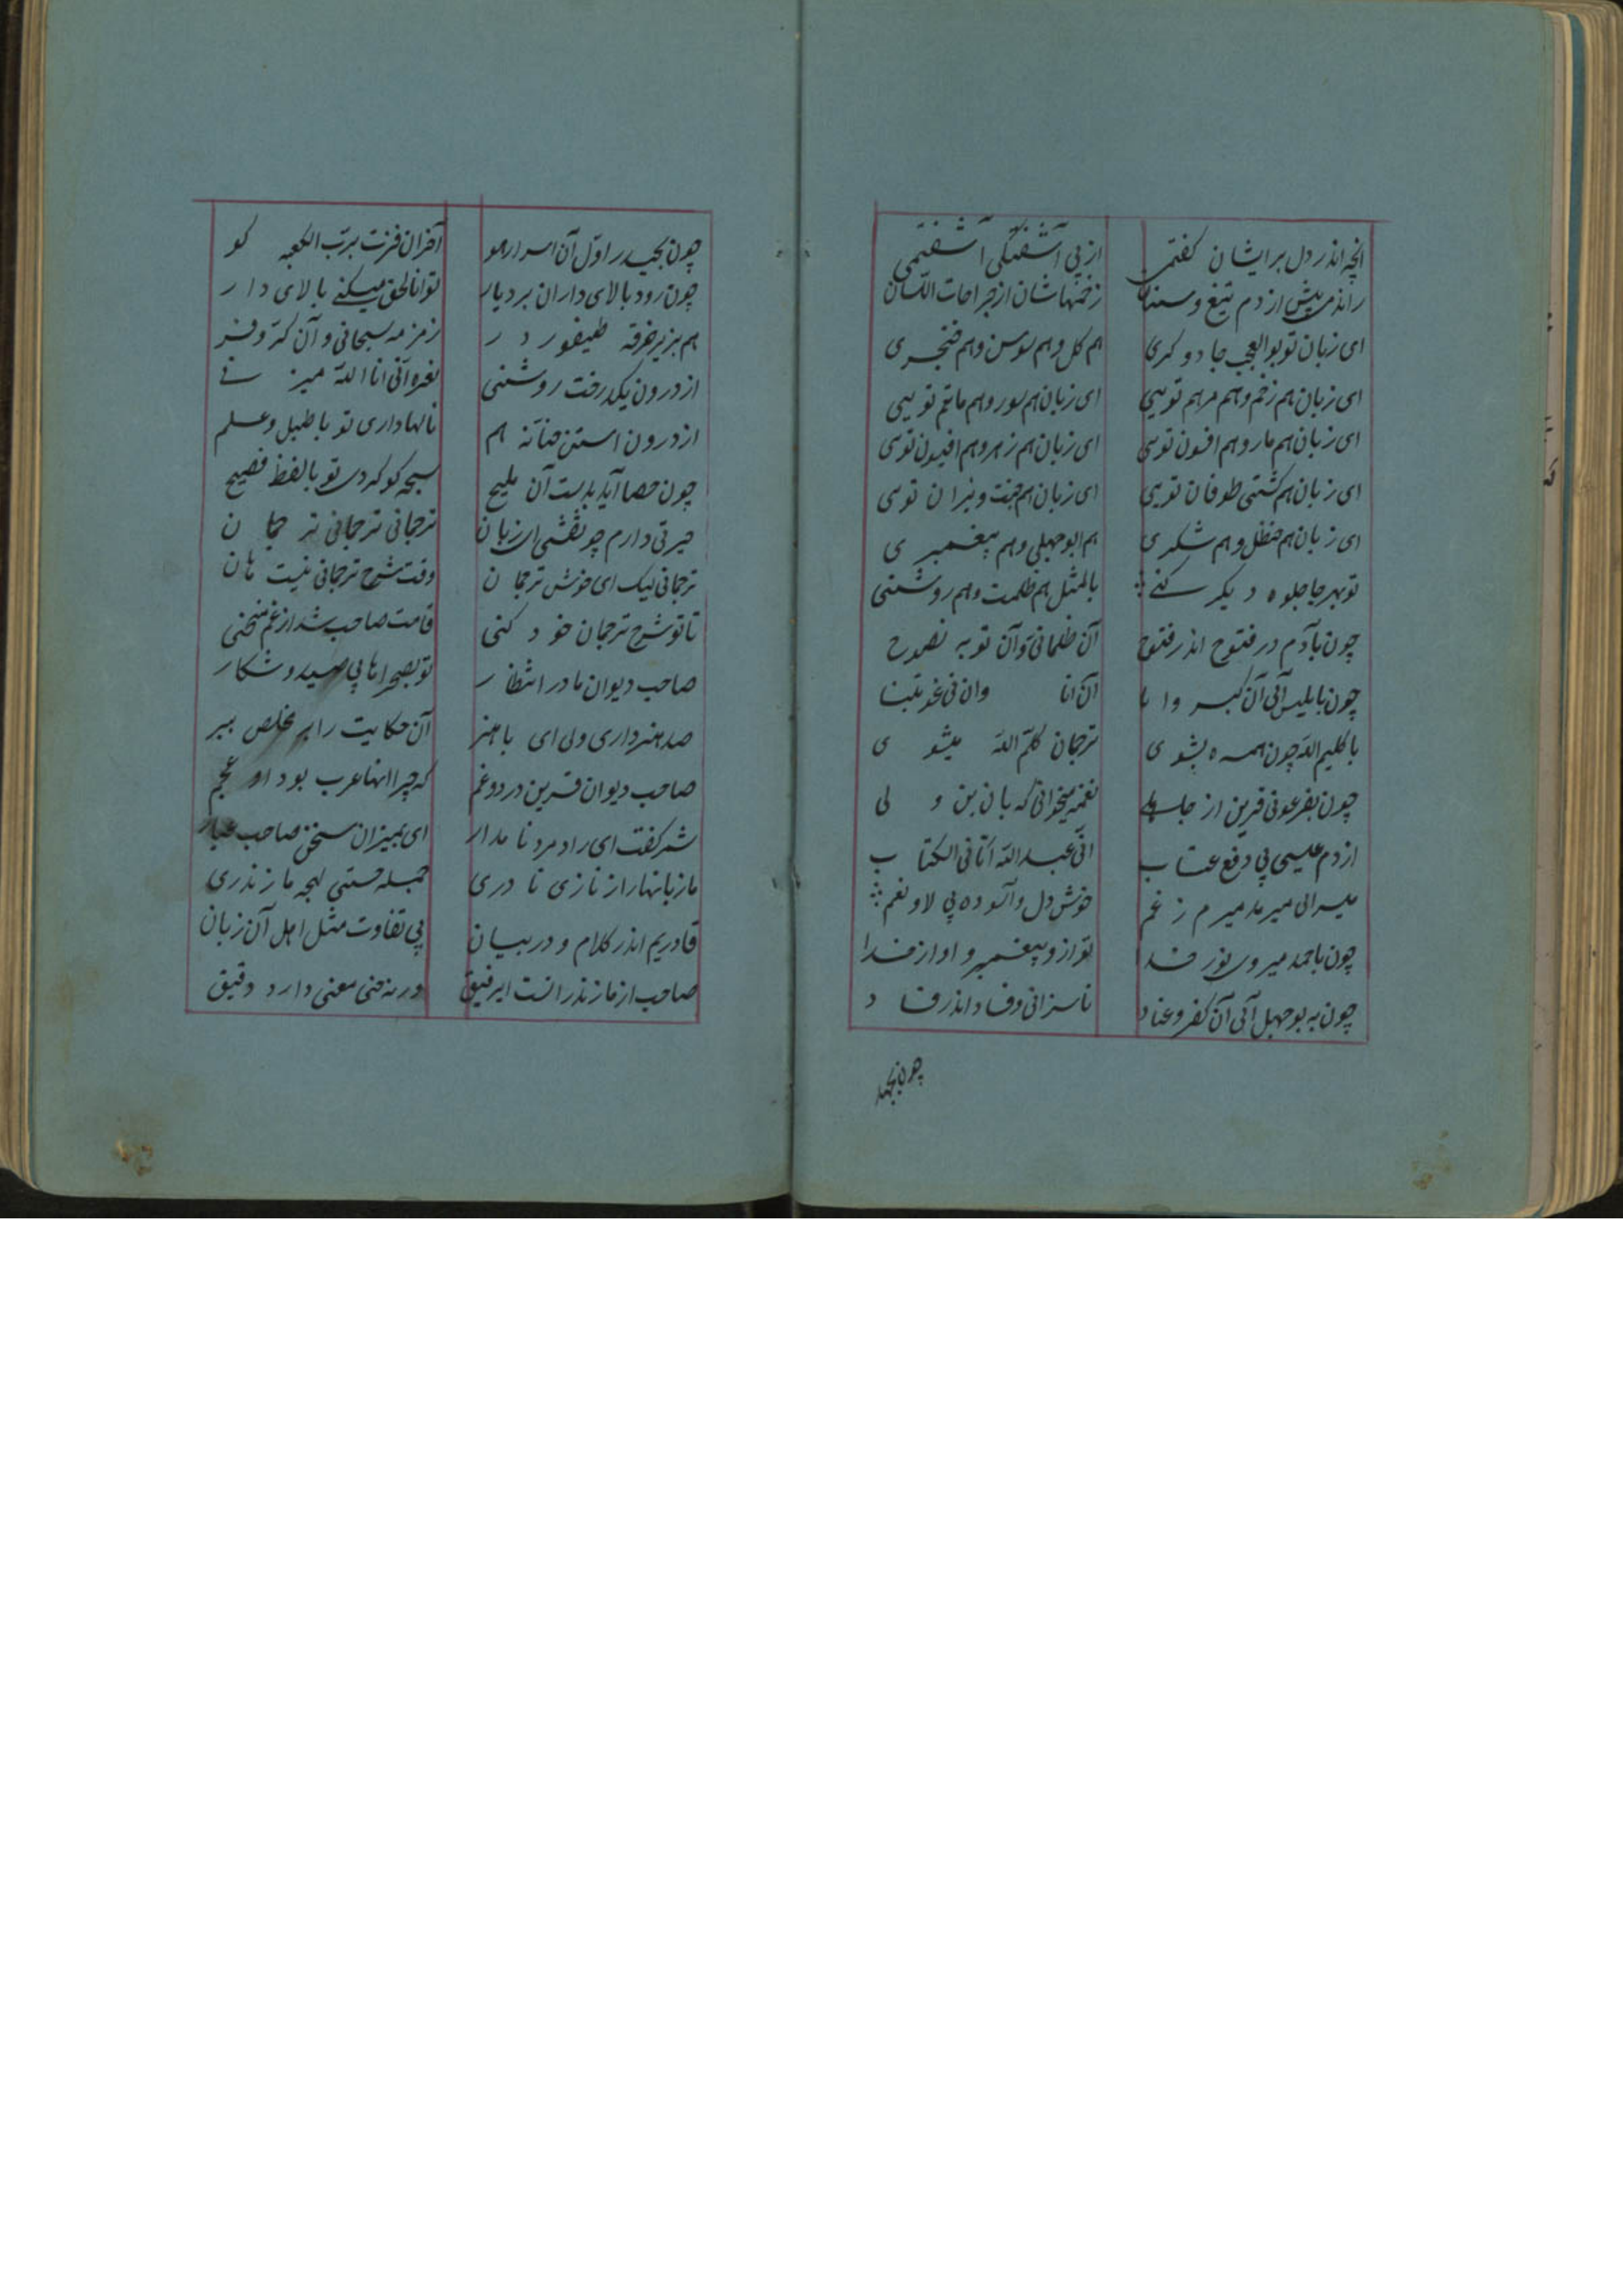 انچه اندر دل برایشان گفتمی از پی آشفتگی آشفتمی
راندمی پیش از دم تیغ و سنان زخمهاشان از جراحات اللسان
ای زبان تو بوالعجب جادوگری هم گل و هم سوسن و هم خنجری
ای زبان هم زخم و هم مرهم تویی ای زبان هم سور و هم ماتم تویی
ای زبان هم مار و هم افسون توی ای زبان هم زهر و هم افیون توی
ای زبان هم کشتی طوفان تویی ای زبان هم جنت و نیران توی
ای زبان هم حنظل و هم شکری هم ابوجهلی و هم پیغمبری
تو بهر جا جلوه دیگر کنی بالمثل هم ظلمت و هم روشنی
چون بآدم در فتوح اندر فتوح آن ظلمانی و آن توبه نصوح
چون بابلیس آئی آن کبر وا با آن انا وان فی غویتنا
با کلیم الله چون همره بشوی ترجمان کلم الله میشوی
چون بفرعونی قرین از جاهلی نغمه میخوانی که
از دم عیسی پی دفع عتاب انی عبدالله آتانی الکتاب
میسرائی میرمد میرم ز غم خوش دل و آسوده پی لا و نعم
چون باحمد میروی نور خدا تو از و پیغمبر و او از خدا
چون به بوجهل آئی آن کفر و عناد ناسزائی و فساد اندر فساد
چون بحیدر
چون بحیدر اول آن اسرار هو آخر آن فزت برب الکعبه گو
چون رود بالای دار آن بردبار تو انا الحق میکنی بالای دار
هم بزیر خرقه طیفور در زمزمه سبحانی و آن کر و فر
از درون یکدرخت روشنی نعره انی انا الله میزنی
از درون استن حنانه هم نالها داری تو با طبل و علم
چون حصا آید بدست آن ملیح سبحه گو گردی تو با لفظ فصیح
حیرتی دارم چو نقشی ای زبان ترجمانی ترجمانی ترجمان
ترجمانی لیک ای خوش ترجمان وقت شرح ترجمانی نیست هان
تا تو شرح ترجمان خود کنی قامت صاحب شد از غم منحنی
صاحب دیوان ما در انتظار تو بصحراها پی صید و شکار
صد هنر داری ولی ای با هنر آن حکایت را بر مخلص ببر
صاحب دیوان قرین درد و غم که چرا اینها عرب بود او عجم
شمر گفت ای راد مرد نامدار ای بمیزان سخن صاحب عیار
ما زبانها را ز تازی تا دری جمله حستی لهجه مازندری
قادریم اندر کلام و در بیان بی تفاوت مثل اهل آن زبان
صاحب از مازندرانست ایرفیق ورنه معنی دارد دقیق